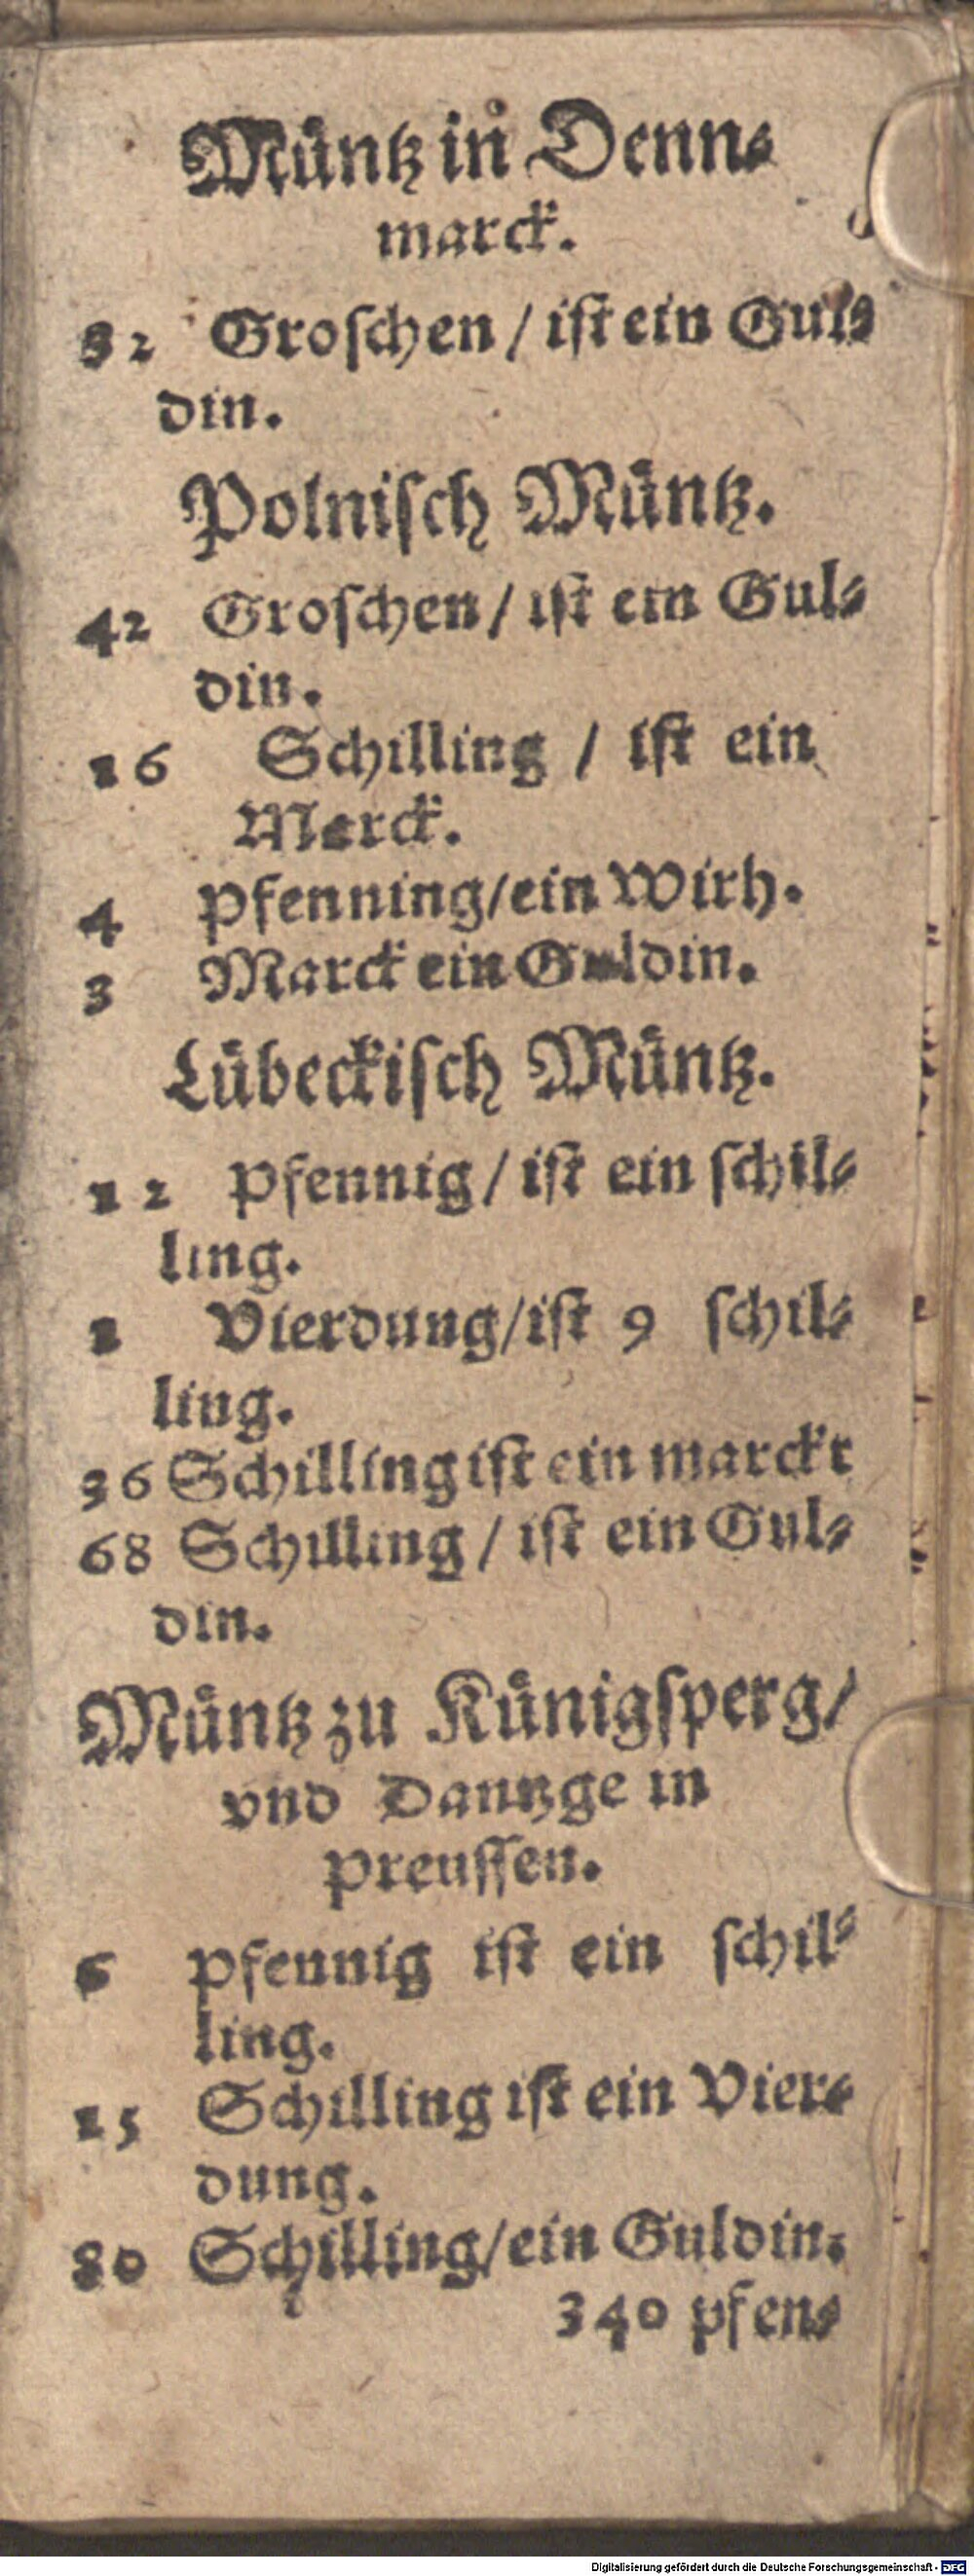 Muͤntz in Denn⸗
marck.
32 Groſchen / iſt ein Gul⸗
din.
Polniſch Muͤntz.
42 Groſchen / iſt ein Gul⸗
din.
16 Schilling / iſt ein
Merck.
4 Pfenning / ein Wirh.
3 Marck ein Guldin.
Luͤbeckiſch Muͤntz.
12 Pfennig / iſt ein ſchil⸗
ling.
1 Vierdung / iſt 9 ſchil⸗
ling.
36 Schilling iſt ein marckt
68 Schilling / iſt ein Gul⸗
din.
Muͤntz zu Kuͤnigſperg /
vnd Dantzge in
Preuſſen.
6 Pfennig iſt ein ſchil⸗
ling.
15 Schilling iſt ein Vier⸗
dung.
80 Schilling / ein Guldin.
340 pfen⸗
Digitalisierung gefördert durch die Deutsche Forschungsgemeinschaft - DFG